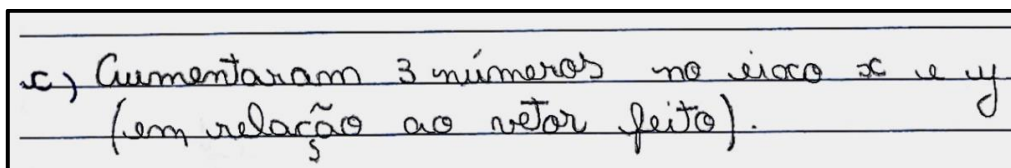 c) Aumentaram 3 números no eixo x e y
(em relação ao vetor feito).